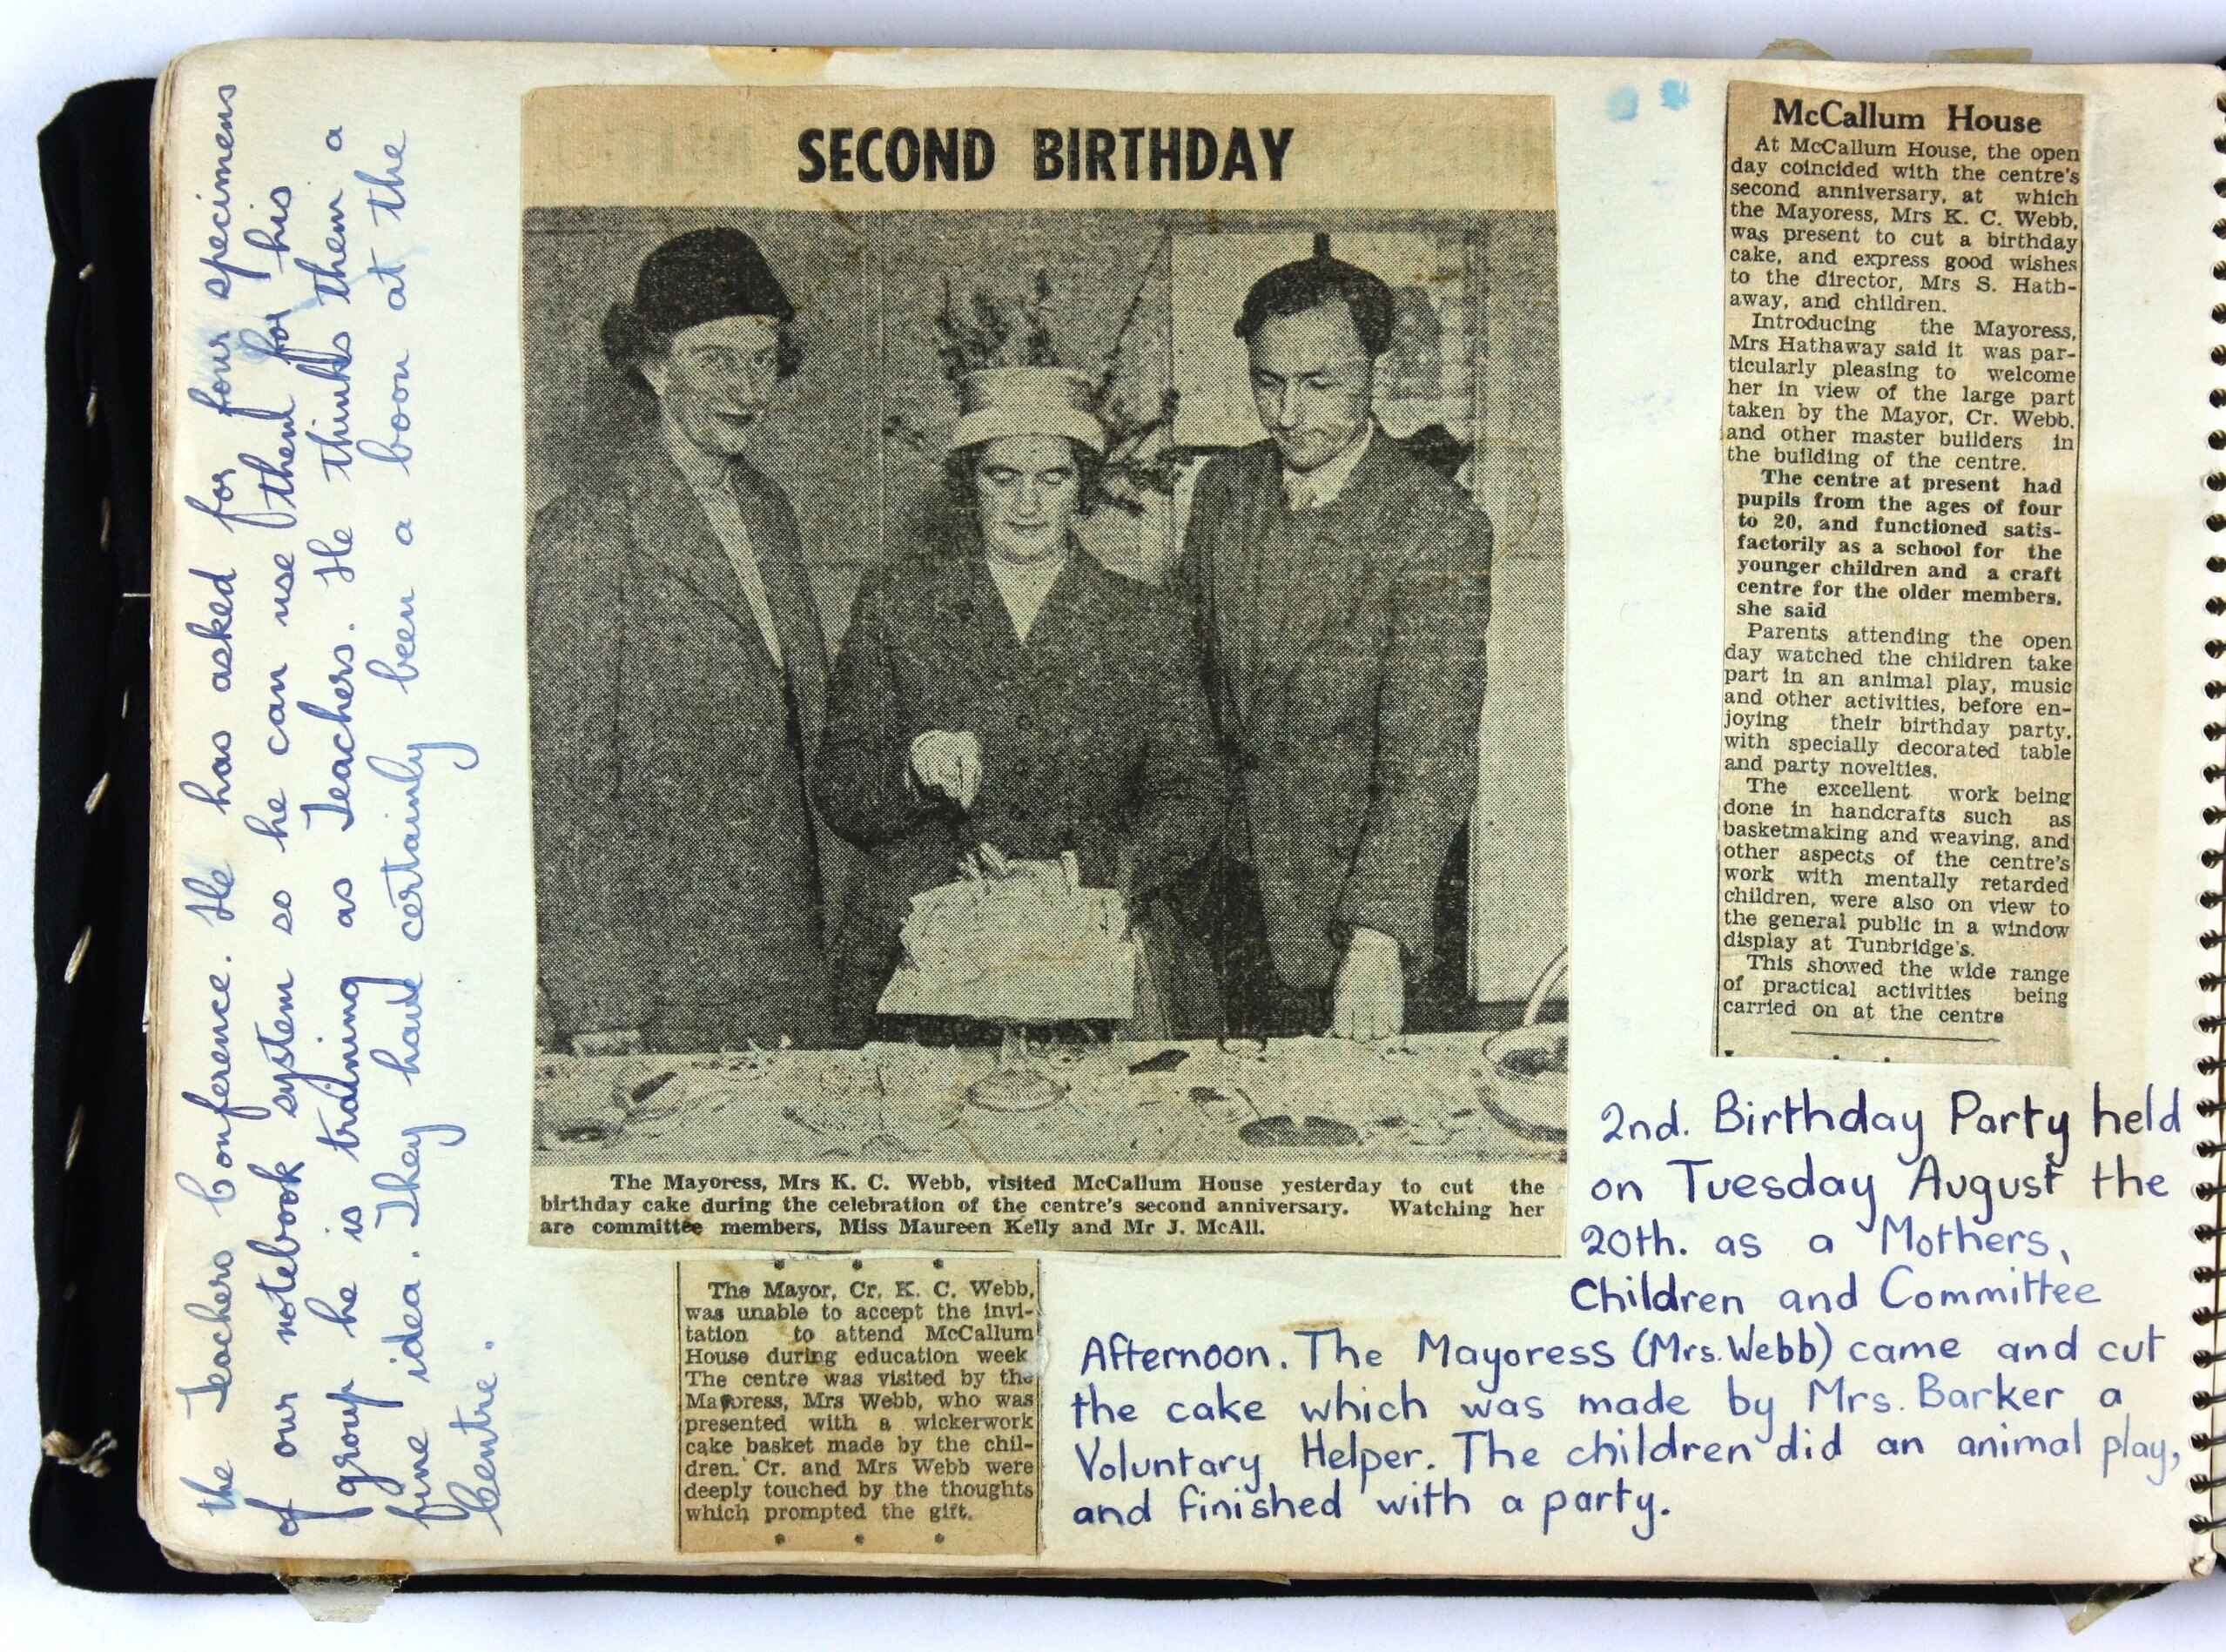 the Teachers Conference. He has asked for four specimens
of our notebook system so he can use them for his
group he is training as Teachers. He thinks them a
fine idea. They have certainly been a boon at the
Centre.
SECOND BIRTHDAY
The Mayoress, Mrs K. C. Webb, visited McCallum House yesterday to cut the
birthday cake during the celebration of the centre's second anniversary. Watching her
are committee members, Miss Maureen Kelly and Mr J. McAll.
The Mayor, Cr. K. C. Webb,
was unable to accept the invi-
tation to attend McCallum
House during education week
The centre was visited by the
Mayoress, Mrs Webb, who was
presented with a wickerwork
cake basket made by the chil-
dren. Cr. and Mrs Webb were
deeply touched by the thoughts
which prompted the gift.
McCallum House
At McCallum House, the open
day coincided with the centre's
second anniversary, at which
the Mayoress, Mrs K. C. Webb,
was present to cut a birthday
cake, and express good wishes
to the director, Mrs S. Hath-
away, and children.
Introducing the Mayoress,
Mrs Hathaway said it was par-
ticularly pleasing to welcome
her in view of the large part
taken by the Mayor, Cr. Webb.
and other master builders in
the building of the centre.
The centre at present had
pupils from the ages of four
to 20, and functioned satis-
factorily as a school for the
younger children and a craft
centre for the older members,
she said
Parents attending the open
day watched the children take
part in an animal play, music
and other activities, before en-
joying their birthday party,
with specially decorated table
and party novelties.
The excellent work being
done in handcrafts such as
basketmaking and weaving, and
other aspects of the centre's
work with mentally retarded
children, were also on view to
the general public in a window
display at Tunbridge's.
This showed the wide range
of practical activities being
carried on at the centre
2nd. Birthday Party held
on Tuesday August the
20th. as a Mothers,
Children and Committee
Afternoon. The Mayoress (Mrs. Webb) came and cut
the cake which was made by Mrs. Barker a
Voluntary Helper. The children did an animal play,
and finished with a party.